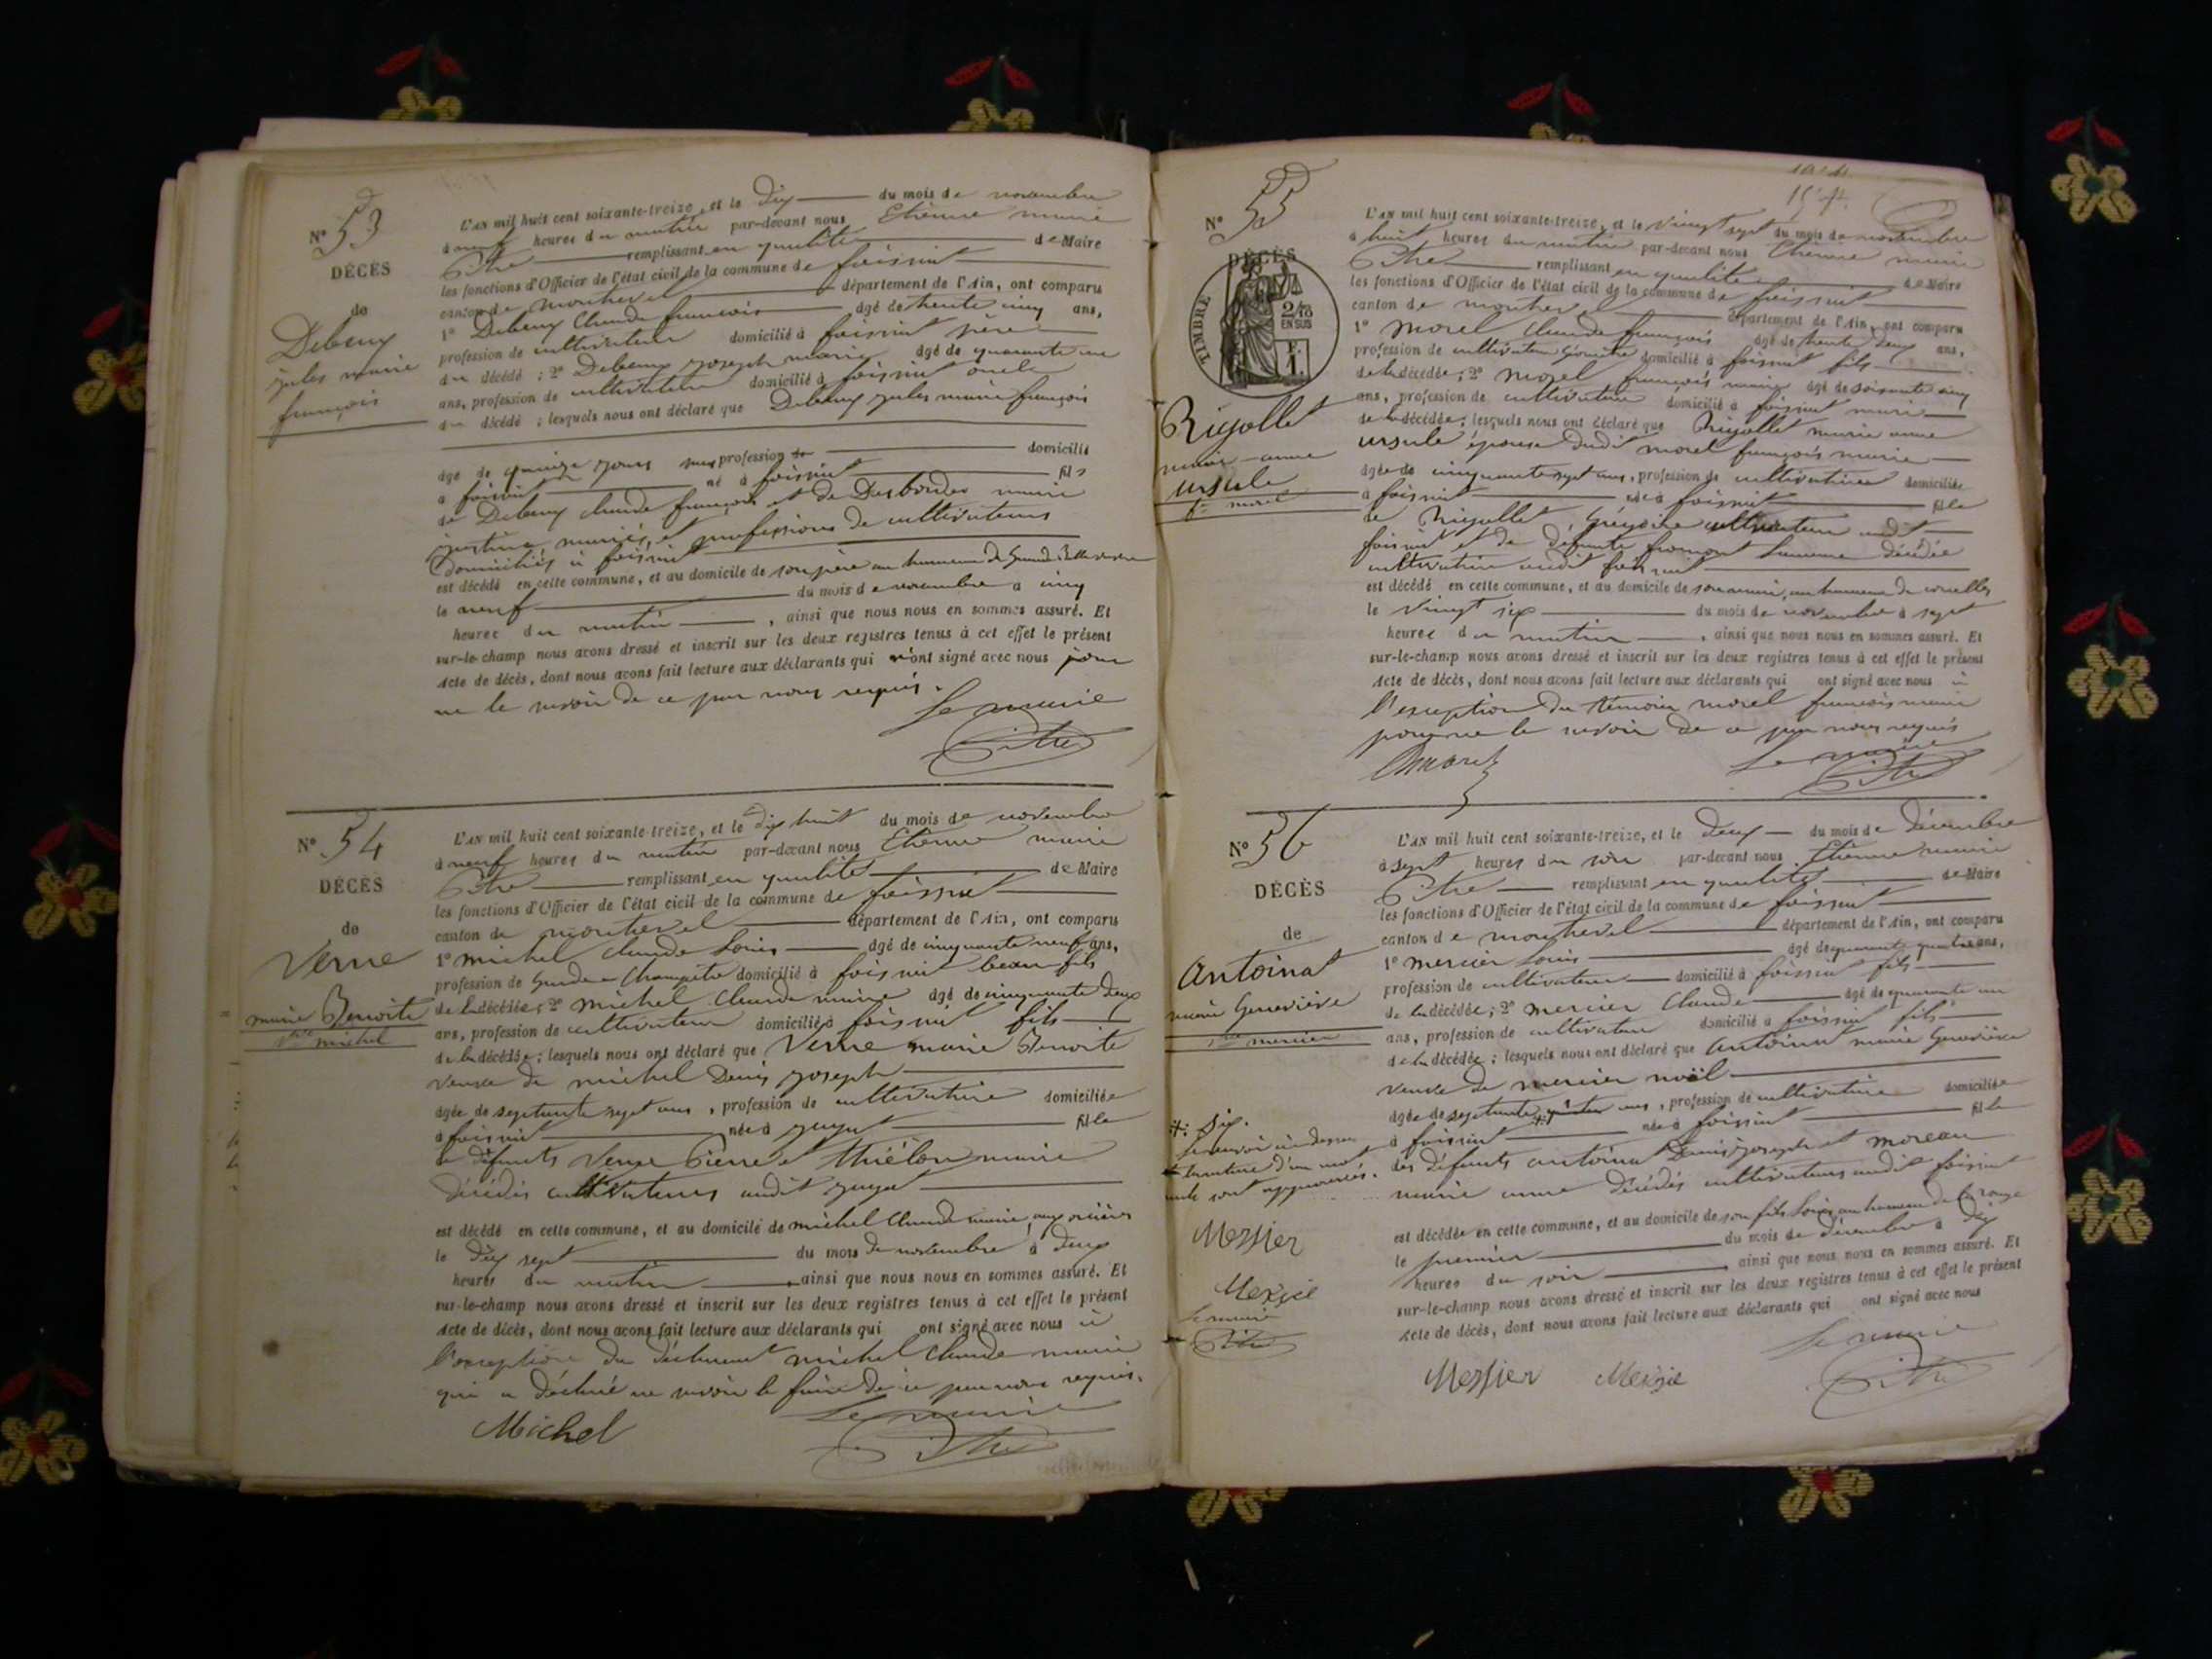 N° 53
DÉCÈS
de
Debeny
jules marie
françois
L'AN mil huit cent soixante-treize, et le dix du mois de novembre
à neuf heures du matin par-devant nous Etienne marie
Pitre remplissant en qualité de Maire
les fonctions d'Officier de l'état civil de la commune de foissiat
canton de montrevel département de l'Ain, ont comparu
1° Debeny Claude françois âgé de trente cinq ans,
profession de cultivateur domicilié à foissiat père
du décédé ; 2° Debeny joseph marie âgé de quarante un
ans, profession de cultivateur domicilié à foissiat oncle
du décédé ; lesquels nous ont déclaré que Debeny jules marie françois
âgé de quinze jours sans profession de domicilié
à foissiat né à foissiat fils
de Debeny claude françois et de Desbordes marie
justine mariés, et professions de cultivateurs
domiciliés à foissiat
est décédé en cette commune, et au domicile de son père au hameau de
le neuf du mois de novembre à cinq
heures du matin , ainsi que nous nous en sommes assuré. Et
sur-le-champ nous avons dressé et inscrit sur les deux registres tenus à cet effet le présent
Acte de décès, dont nous avons fait lecture aux déclarants qui n'ont signé avec nous pour
ne le savoir de ce par nous requis.
Le maire
Pitre
N° 54
DÉCÈS
de
Verne
marie Benoite
vve michel
L'AN mil huit cent soixante-treize, et le dix huit du mois de novembre
à neuf heures du matin par-devant nous Etienne marie
Pitre remplissant en qualité de Maire
les fonctions d'Officier de l'état civil de la commune de foissiat
canton de montrevel département de l'Ain, ont comparu
1° michel claude Louis âgé de cinquante neuf ans,
profession de Garde Champêtre domicilié à foissiat beau fils
de la décédée ; 2° michel Claude marie âgé de cinquante deux
ans, profession de cultivateur domicilié à foissiat fils
de la décédée ; lesquels nous ont déclaré que Verne marie Benoite
veuve de michel Denis joseph
âgée de septante sept ans , profession de cultivatrice domiciliée
à foissiat née à jayat fille
de défunts Verne Pierre et Thiélon marie
décédés cultivateurs audit jayat
est décédé en cette commune, et au domicile de michel Claude marie,
le dix sept du mois de novembre à deux
heures du matin , ainsi que nous nous en sommes assuré. Et
sur-le-champ nous avons dressé et inscrit sur les deux registres tenus à cet effet le présent
Acte de décès, dont nous avons fait lecture aux déclarants qui ont signé avec nous à
l'exception du déclarant michel claude marie
qui a déclaré ne savoir le faire de ce par nous requis.
Michel
Le maire
Pitre
N° 55
DÉCÈS
TIMBRE
2/10
EN SUS
F.
1.
Rigollet
marie-anne
ursule
fe morel
L'AN mil huit cent soixante-treize, et le vingt sept du mois de novembre
à huit heures du matin par-devant nous Etienne marie
Pitre remplissant en qualité de Maire
les fonctions d'Officier de l'état civil de la commune de foissiat
canton de montrevel département de l'Ain, ont comparu
1° morel claude françois âgé de trente deux ans,
profession de cultivateur géomètre domicilié à foissiat fils
de la décédée ; 2° morel françois marie âgé de soixante cinq
ans, profession de cultivateur domicilié à foissiat mari
de la décédée ; lesquels nous ont déclaré que Rigollet marie anne
ursule épouse dudit morel françois marie
âgée de cinquante sept ans, profession de cultivatrice domiciliée
à foissiat née à foissiat fille
de Rigollet Grégoire cultivateur audit
foissiat et de défunte fromont décédée
cultivatrice audit foissiat
est décédé en cette commune, et au domicile de son mari, au hameau de
le vingt six du mois de novembre à sept
heures du matin , ainsi que nous nous en sommes assuré. Et
sur-le-champ nous avons dressé et inscrit sur les deux registres tenus à cet effet le présent
Acte de décès, dont nous avons fait lecture aux déclarants qui ont signé avec nous à
l'exception du témoin morel françois marie
pour ne le savoir de ce par nous requis
Le maire
Pitre
N° 56
DÉCÈS
de
Antoinat
marie Geneviève
vve mercier
L'AN mil huit cent soixante-treize, et le deux du mois de décembre
à sept heures du soir par-devant nous Etienne marie
Pitre remplissant en qualité de Maire
les fonctions d'Officier de l'état civil de la commune de foissiat
canton de montrevel département de l'Ain, ont comparu
1° mercier Louis âgé de quarante quatre ans,
profession de cultivateur domicilié à foissiat fils
de la décédée ; 2° mercier Claude âgé de quarante un
ans, profession de cultivateur domicilié à foissiat fils
de la décédée ; lesquels nous ont déclaré que Antoinat marie Geneviève
veuve de mercier noël
âgée de septante ans , profession de cultivatrice domiciliée
à foissiat née à foissiat fille
des défunts antoinat Denis joseph et moreau
marie anne décédés cultivateurs audit foissiat
est décédée en cette commune, et au domicile de son fils Louis, au hameau de
le premier du mois de décembre à dix
heures du soir , ainsi que nous nous en sommes assuré. Et
sur-le-champ nous avons dressé et inscrit sur les deux registres tenus à cet effet le présent
Acte de décès, dont nous avons fait lecture aux déclarants qui ont signé avec nous
Le maire
Messier
Pitre
six.
Le renvoi ci-dessus
et la rature d'un mot
nul sont approuvés.
Messier
Le maire
Pitre